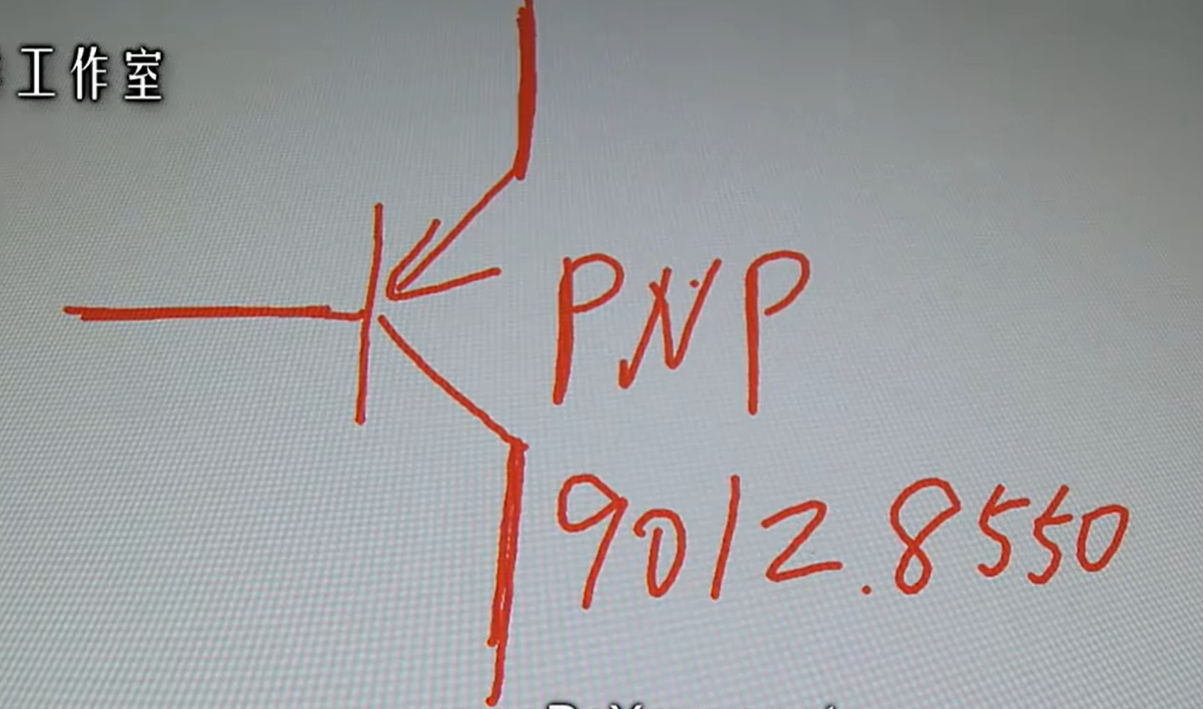 工作室
PNP
9012.8550